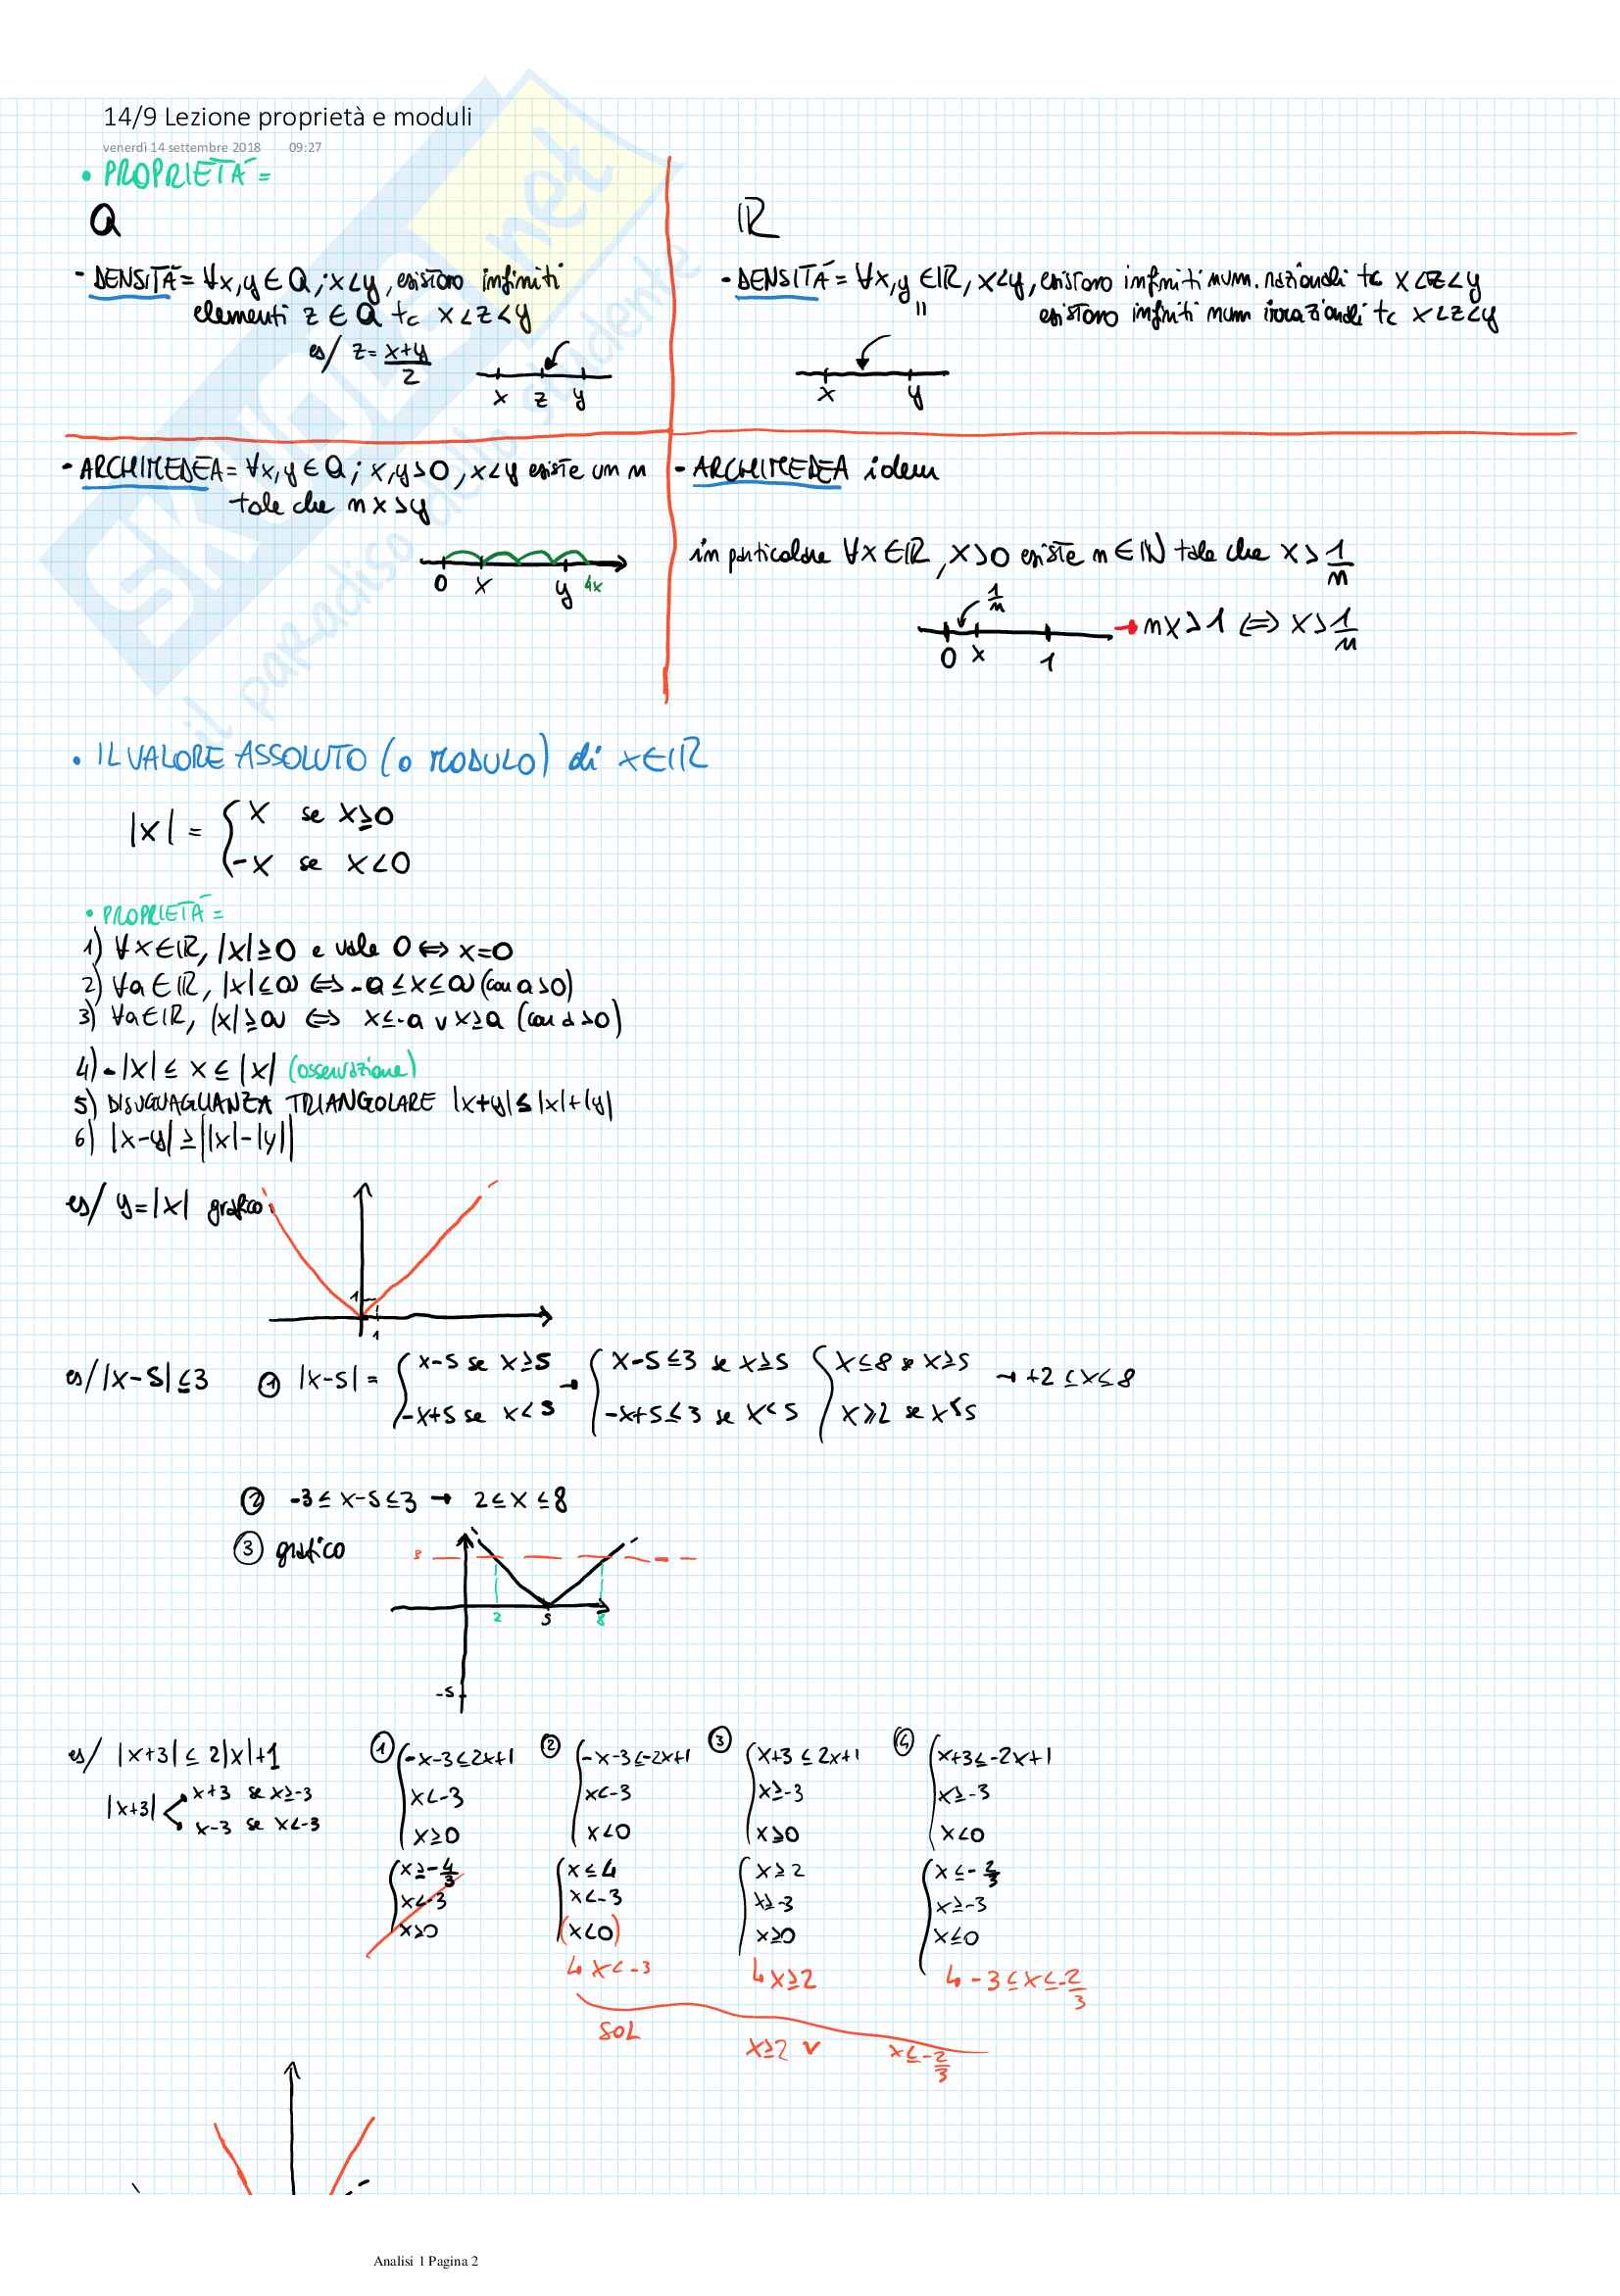 14/9 Lezione proprietà e moduli
venerdì 14 settembre 2018 09:27
• PROPRIETÀ =
Q
- DENSITÀ = ∀x,y ∈ Q ; x<y, esistono infiniti
elementi z ∈ Q tc x<z<y
es/ z = x+y/2
x z y
ℝ
- DENSITÀ = ∀x,y ∈ ℝ, x<y, esistono infiniti num. razionali tc x<z<y
" esistono infiniti num irrazionali tc x<z<y
x y
- ARCHIMEDEA = ∀x,y ∈ Q ; x,y>0, x<y esiste un n
tale che nx>y
0 x y 4x
- ARCHIMEDEA idem
in particolare ∀x ∈ ℝ, x>0 esiste n ∈ ℕ tale che x > 1/n
1/n
0 x 1 → nx>1 ⇔ x > 1/n
• IL VALORE ASSOLUTO (o MODULO) di x ∈ ℝ
|x| = { x se x≥0
-x se x<0
• PROPRIETÀ =
1) ∀x ∈ ℝ, |x|≥0 e vale 0 ⇔ x=0
2) ∀a ∈ ℝ, |x|≤a ⇔ -a≤x≤a (con a>0)
3) ∀a ∈ ℝ, |x|≥a ⇔ x≤-a v x≥a (con a>0)
4) -|x| ≤ x ≤ |x| (osservazione)
5) DISUGUAGLIANZA TRIANGOLARE |x+y|≤|x|+|y|
6) |x-y| ≥ ||x|-|y||
es/ y=|x| grafico:
1
1
es/ |x-5|≤3 ① |x-5| = { x-5 se x≥5 → { x-5≤3 se x≥5 { x≤8 se x≥5 → +2≤x≤8
-x+5 se x<5 -x+5≤3 se x<5 x≥2 se x<5
② -3≤x-5≤3 → 2≤x≤8
③ grafico
3
2 5 8
-5
es/ |x+3| ≤ 2|x|+1
|x+3| < x+3 se x≥-3
x-3 se x<-3
① { -x-3≤2x+1
x<-3
x≥0
{ x≥-4/3
x<-3
x≥0
② { -x-3≤-2x+1
x<-3
x<0
{ x≤4
x<-3
(x<0)
↳ x<-3
③ { x+3≤2x+1
x≥-3
x≥0
{ x≥2
x≥-3
x≥0
↳ x≥2
④ { x+3≤-2x+1
x≥-3
x<0
{ x≤-2/3
x≥-3
x≤0
↳ -3≤x≤-2/3
SOL
x≥2 v x≤-2/3
Analisi 1 Pagina 2
SKUOLA.net
il paradiso dello studente